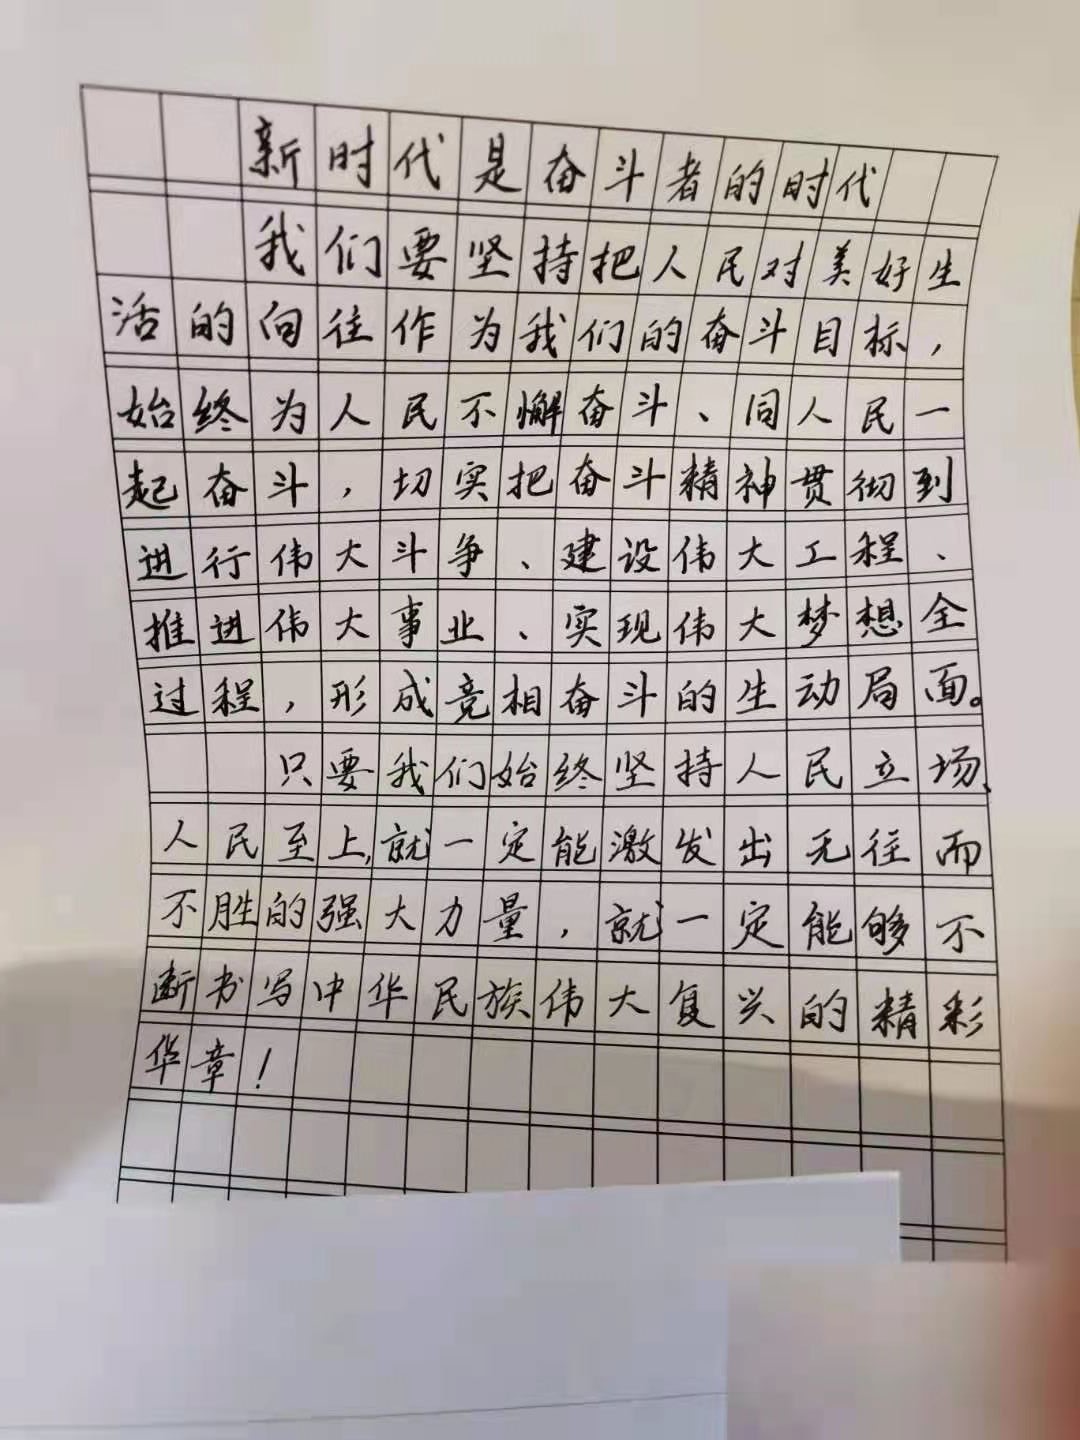 新时代是奋斗者的时代
我们要坚持把人民对美好生
活的向往作为我们的奋斗目标，
始终为人民不懈奋斗、同人民一
起奋斗，切实把奋斗精神贯彻到
进行伟大斗争、建设伟大工程、
推进伟大事业、实现伟大梦想全
过程，形成竞相奋斗的生动局面。
只要我们始终坚持人民立场、
人民至上，就一定能激发出无往而
不胜的强大力量，就一定能够不
断书写中华民族伟大复兴的精彩
华章！